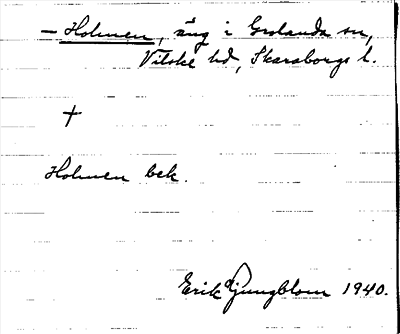 – Holmen, äng i Grolanda sn,
Vilske hd, Skaraborgs l.
†
Holmen bek.
Erik Ljungblom 1940.